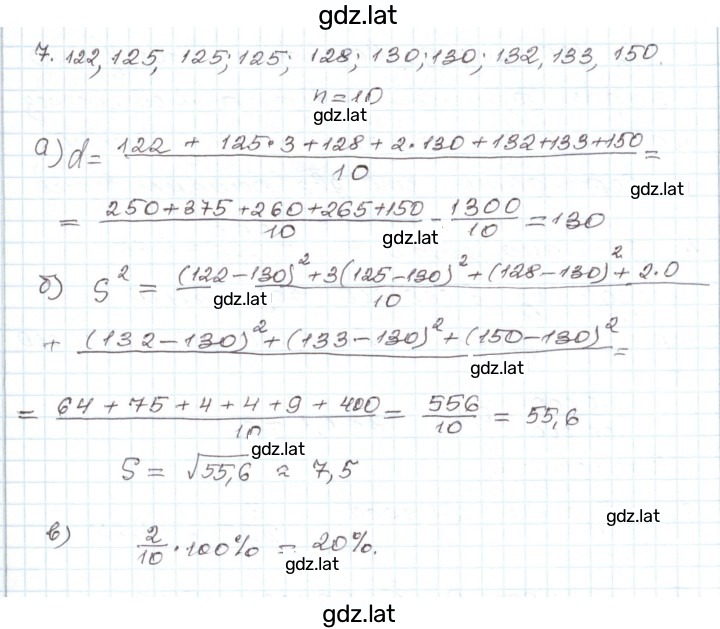 gdz.lat
7. 122, 125, 125; 125; 128; 130; 130; 132, 133, 150.
n = 10
gdz.lat
а) d = (122 + 125·3 + 128 + 2·130 + 132 + 133 + 150)/10 =
gdz.lat
= (250 + 375 + 260 + 265 + 150)/10 - 1300/10 = 130
gdz.lat
б) S² = ((122 - 130)² + 3(125 - 130)² + (128 - 130)² + 2·0)/10
gdz.lat
+ (132 - 130)² + (133 - 130)² + (150 - 130)² =
gdz.lat
= (64 + 75 + 4 + 4 + 9 + 400)/10 = 556/10 = 55,6
gdz.lat
S = √55,6 ≈ 7,5
gdz.lat
в) 2/10 · 100% = 20%.
gdz.lat
gdz.lat